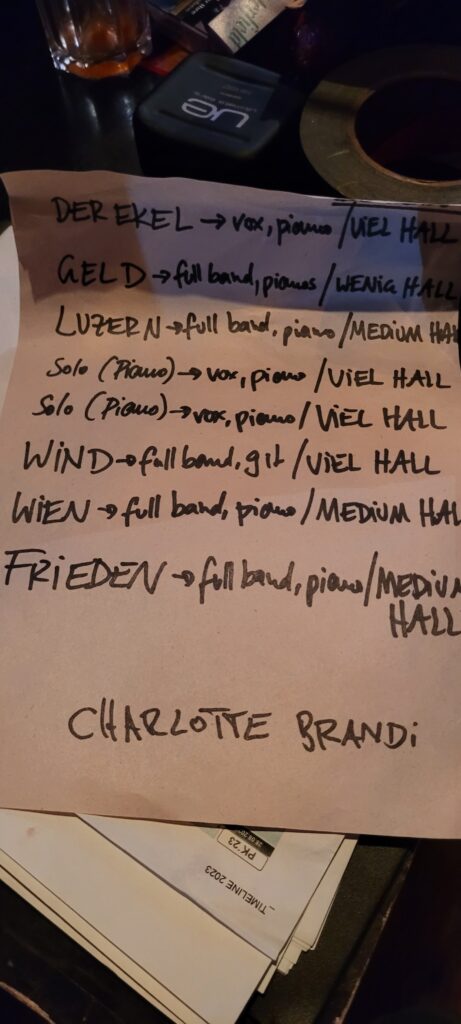 DER EKEL → vox, piano / VIEL HALL
GELD → full band, pianos / WENIG HALL
LUZERN → full band, piano / MEDIUM HAL
Solo (Piano) → vox, piano / VIEL HALL
Solo (Piano) → vox, piano / VIEL HALL
WIND → full band, git / VIEL HALL
WIEN → full band, piano / MEDIUM HAL
FRIEDEN → full band, piano / MEDIUM
HALL
CHARLOTTE BRANDI
PK'23
_TIMELINE 2023
ue